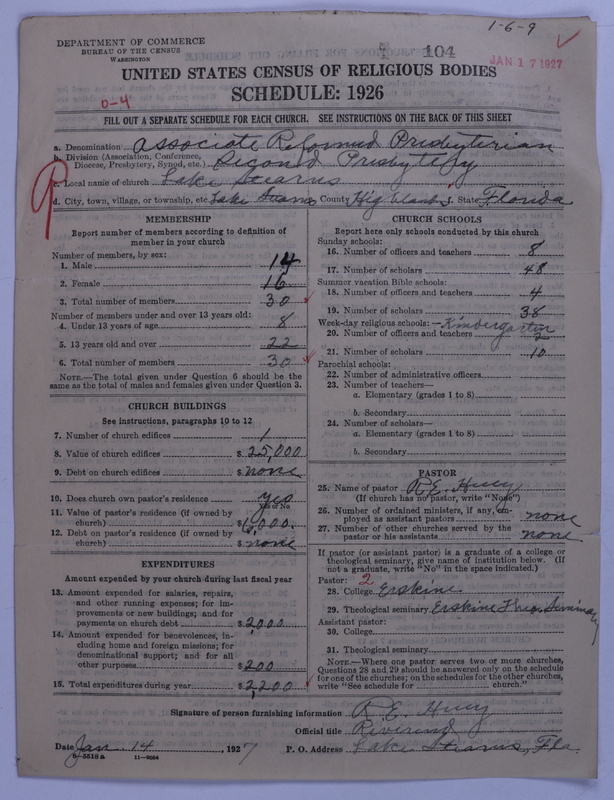 1-6-9
DEPARTMENT OF COMMERCE
BUREAU OF THE CENSUS
WASHINGTON
104
JAN 17 1927
UNITED STATES CENSUS OF RELIGIOUS BODIES
SCHEDULE: 1926
0-4
FILL OUT A SEPARATE SCHEDULE FOR EACH CHURCH. SEE INSTRUCTIONS ON THE BACK OF THIS SHEET
a. Denomination Associate Reformed Presbyterian
b. Division (Association, Conference, Diocese, Presbytery, Synod, etc.) Second Presbytery
c. Local name of church Lake Stearns
d. City, town, village, or township, etc. Lake Stearns County Highlands State Florida
MEMBERSHIP
Report number of members according to definition of
member in your church
Number of members, by sex:
1. Male 14
2. Female 16
3. Total number of members 30
Number of members under and over 13 years old:
4. Under 13 years of age 8
5. 13 years old and over 22
6. Total number of members 30
NOTE.—The total given under Question 6 should be the
same as the total of males and females given under Question 3.
CHURCH BUILDINGS
See instructions, paragraphs 10 to 12
7. Number of church edifices 1
8. Value of church edifices $25,000
9. Debt on church edifices $none
10. Does church own pastor's residence yes
Yes or No
11. Value of pastor's residence (if owned by
church) $ ,000.
12. Debt on pastor's residence (if owned by
church) $none
EXPENDITURES
Amount expended by your church during last fiscal year
13. Amount expended for salaries, repairs,
and other running expenses; for im-
provements or new buildings; and for
payments on church debt $2,000
14. Amount expended for benevolences, in-
cluding home and foreign missions; for
denominational support; and for all
other purposes $200
15. Total expenditures during year $2,200
CHURCH SCHOOLS
Report here only schools conducted by this church
Sunday schools:
16. Number of officers and teachers 8
17. Number of scholars 48
Summer vacation Bible schools:
18. Number of officers and teachers 4
19. Number of scholars 38
Week-day religious schools:—Kindergarten
20. Number of officers and teachers 2
21. Number of scholars 10
Parochial schools:
22. Number of administrative officers
23. Number of teachers—
a. Elementary (grades 1 to 8)
b. Secondary
24. Number of scholars—
a. Elementary (grades 1 to 8)
b. Secondary
PASTOR
25. Name of pastor R. E. Huey
(If church has no pastor, write "None")
26. Number of ordained ministers, if any, em-
ployed as assistant pastors none
27. Number of other churches served by the
pastor or his assistants none
If pastor (or assistant pastor) is a graduate of a college or
theological seminary, give name of institution below. (If
not a graduate, write "No" in the space indicated.)
Pastor: 2
28. College Erskine
29. Theological seminary Erskine Theo. Seminary
Assistant pastor:
30. College
31. Theological seminary
NOTE.—Where one pastor serves two or more churches,
Questions 28 and 29 should be answered only on the schedule
for one of the churches; on the schedules for the other churches,
write "See schedule for church."
Signature of person furnishing information R. E. Huey
Official title Reverend
Date Jan. 14, 1927 P. O. Address Lake Stearns, Fla
8-5518a 11-9064